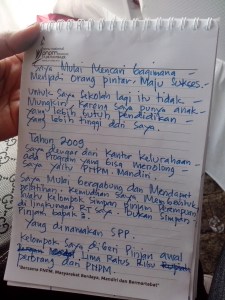 pnpm
Saya Mulai Mencari bagaimana
Menjadi orang pintar. Maju Sukses.
Untuk Saya Sekolah lagi itu tidak
Mungkin. Karena Saya punya anak-
Yang lebih butuh pendidikan
Yang lebih tinggi dari Saya.
Tahun 2009
Saya dengar dari Kantor Kelurahaan
ada Program yang bisa menolong
Saya yaitu PNPM. Mandiri.
Saya Mulai Bergabung dan Mendapat
pelatihan. Kemudian Saya Membentuk
Suatu Kelompok Simpan Pinjam Perempuan
di lingkungan RT Saya. Bukan Simpan
Pinjam bapak².
Yang dinamakan SPP.
Kelompok Saya di beri Pinjam awal
Lima Ratus Ribu
perorang dari PNPM.
"Bersama PNPM, Masyarakat Berdaya, Mandiri dan Bermartabat"